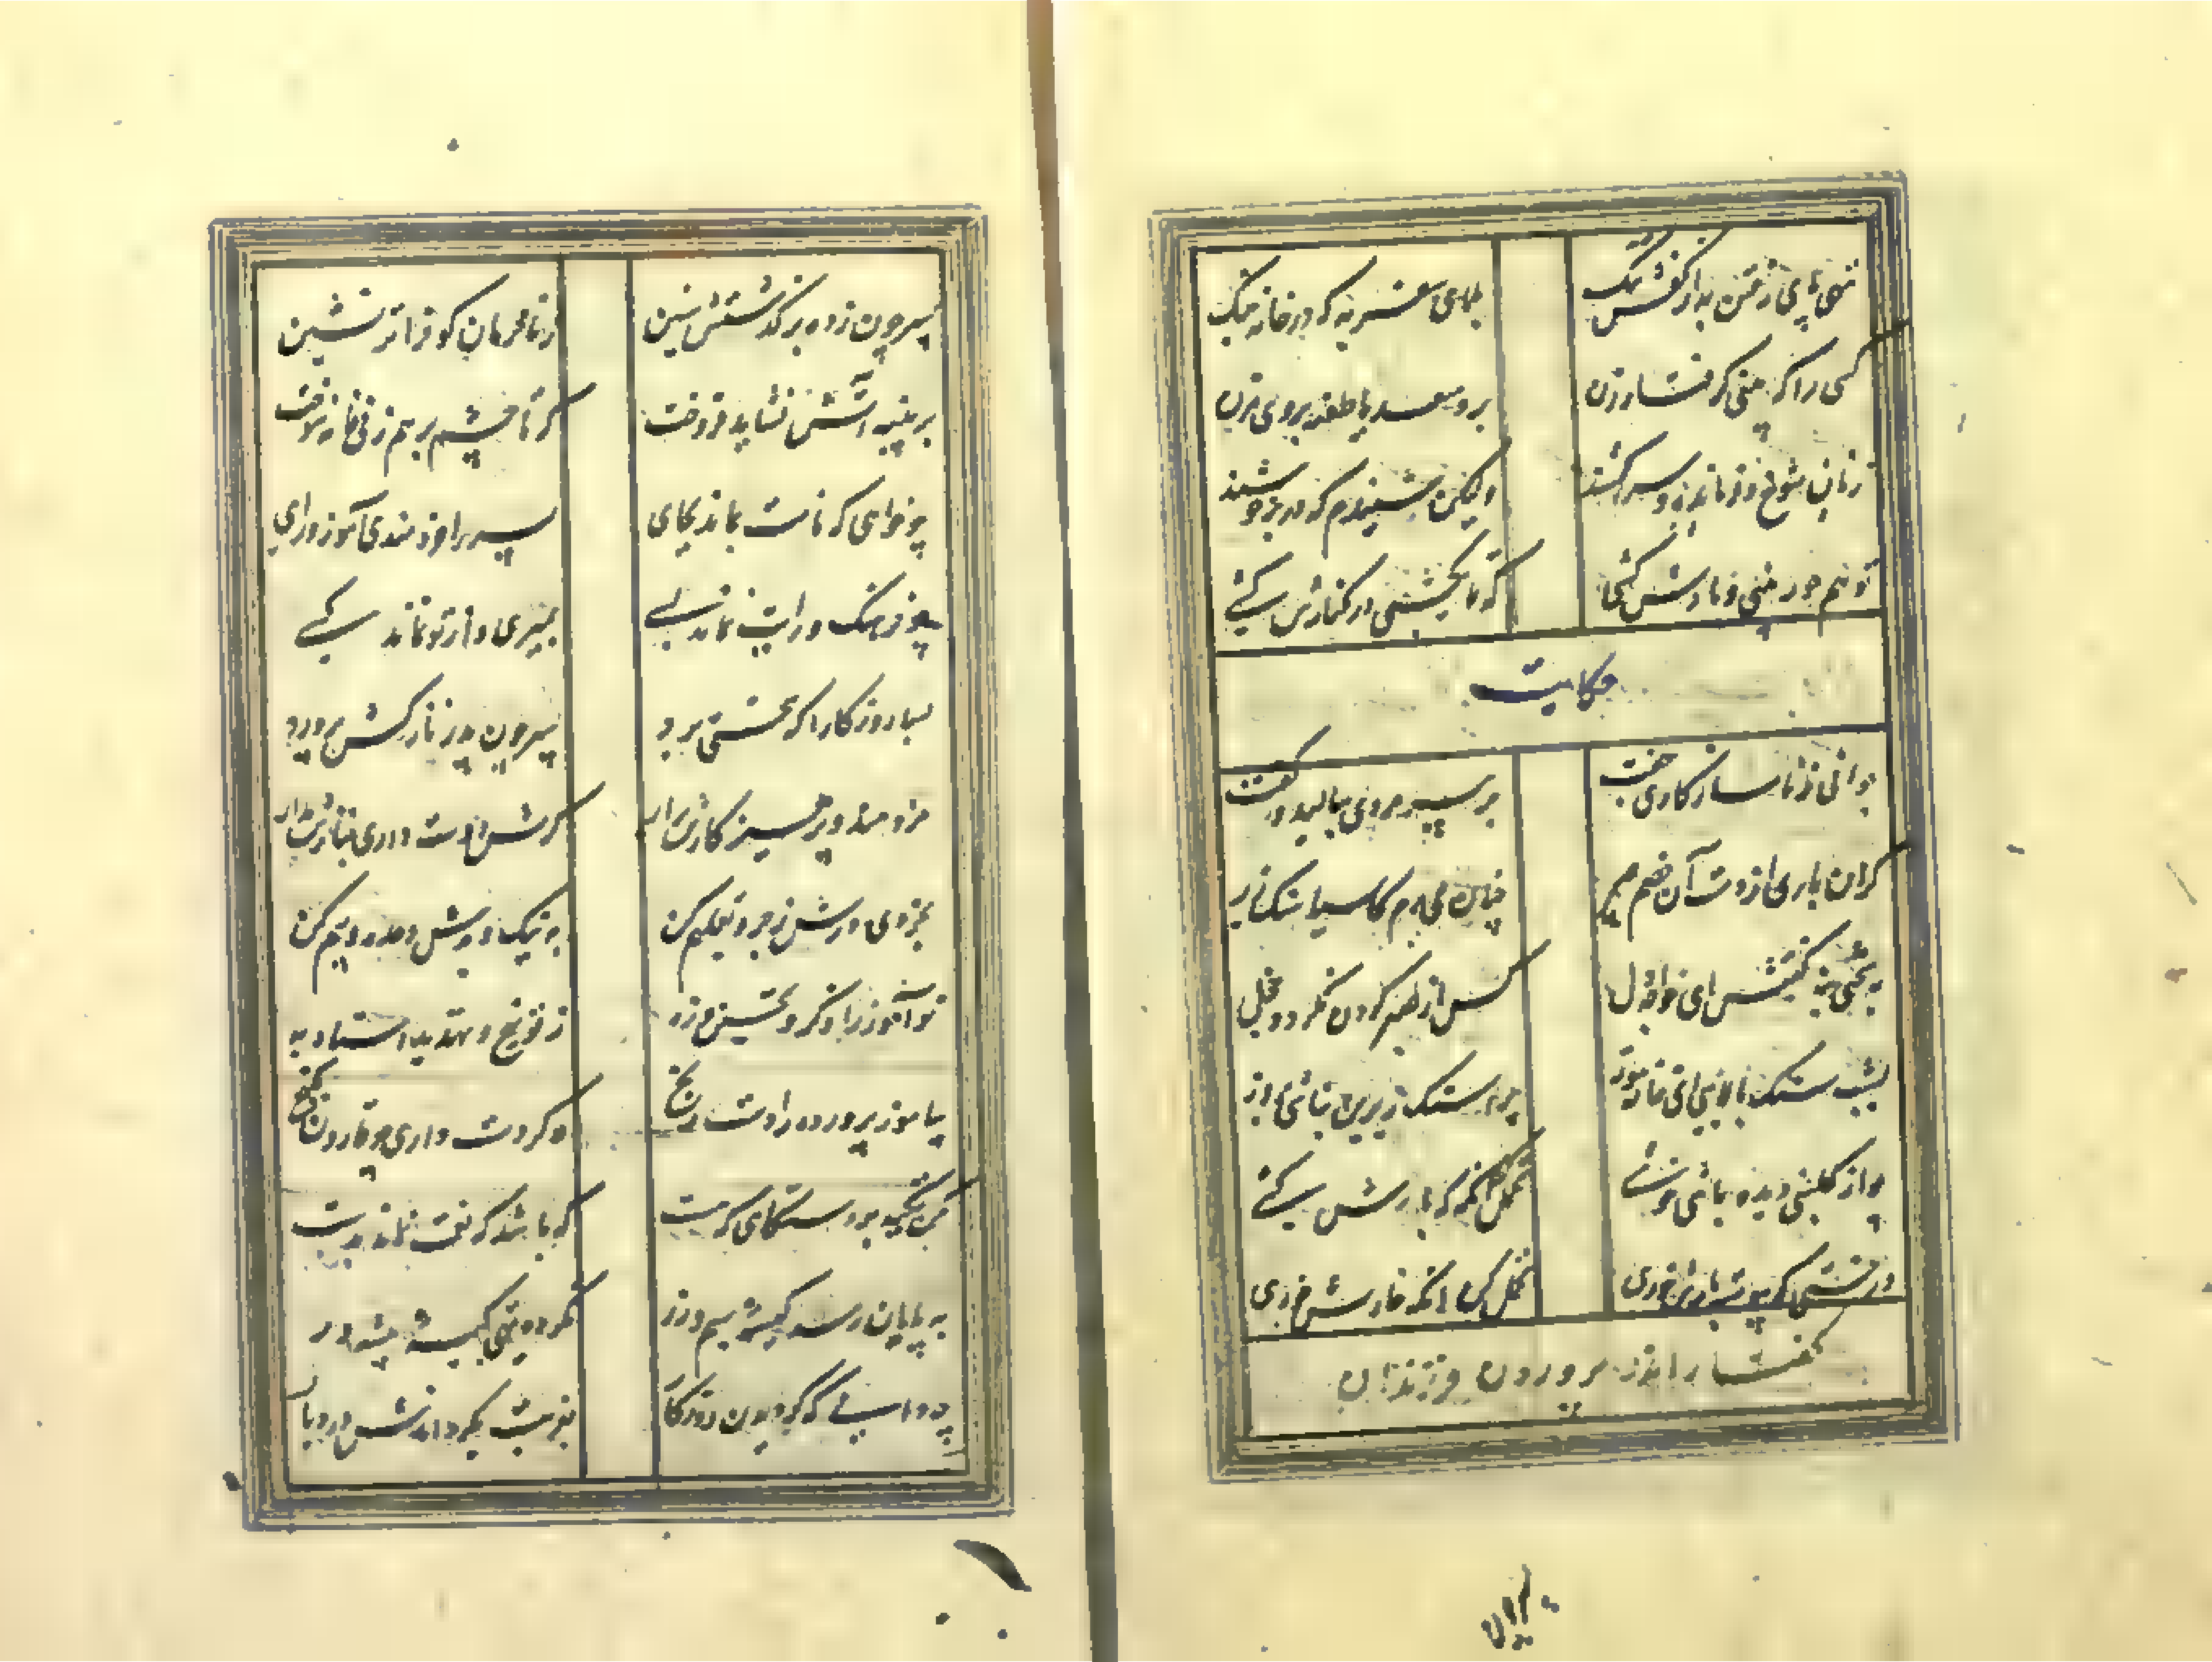 تهی پای رفتن به از کفش تنگ بلای سفر به که در خانه جنگ
کسی را که بینی گرفتار زن برو سعدیا طعنه بروی مزن
زنان شوخ و فرمانده و سرکشند ولیکن شنیدم که در بر خوشند
تو هم جور بینی و بارش کشی اگر یکشبی در کنارش کشی
حکایت
جوانی ز ناسازکاری جفت بر پیرمردی بنالید و گفت
گران باری از دست آن خصم چیر چنان می برم کاسیا سنگ زیر
به سختی بنه گفتش ای خواجه دل کس از صبر کردن نگردد خجل
بشب سنگ بالایی ای خانه سوز چرا سنگ زیرین نباشی بروز
چو از گلبنی دیده باشی خوشی تحمل کن آنگه که بارش کشی
درختی که پیوسته بارش خوری تحمل کن آنگه که خارش خوری
گفتار اندر پروردن فرزندان
پسر چون ز ده بر گذشتش سنین ز نامحرمان کو فراتر نشین
بر پنبه آتش نشاید فروخت که تا چشم بر هم زنی خانه سوخت
چو خواهی که نامت بماند بجای پسر را خردمندی آموز و رای
چو فرهنگ و رایت نماند بسی بمیری و از تو نماند کسی
بسا روزگارا که سختی برد پسر چون پدر نازکش پرورد
خردمند و پرهیزگارش برآر گرش دوست داری بنازش مدار
بخردی درش زجر و تعلیم کن به نیک و بدش وعده و بیم کن
نوآموز را ذکر و تحسین و زه ز توبیخ و تهدید استاد به
بیاموز پرورده را دست رنج وگر دست داری چو قارون گنج
مکن تکیه بر دستگاهی که هست که باشد که نعمت نماند بدست
به پایان رسد کیسه سیم و زر نگردد تهی کیسه پیشه ور
چه دانی که گردیدن روزگار بغربت بگرداندش در دیار